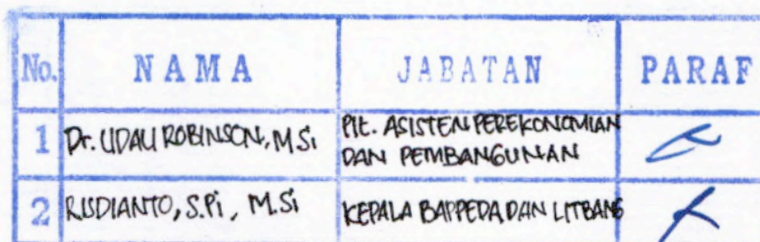 No. NAMA JABATAN PARAF
1 Dr. UDAU ROBINSON, M Si Plt. ASISTEN PEREKONOMIAN
DAN PEMBANGUNAN
2 RISDIANTO, S.Pi, M.Si KEPALA BAPPEDA DAN LITBANG